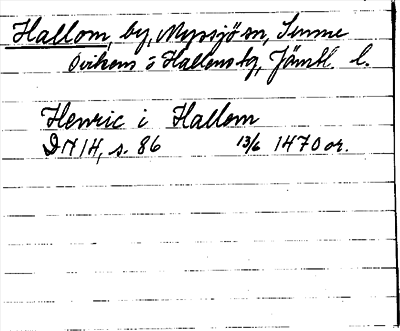 Hallom, by, Myssjö sn, Sunne
Ovikens o Hallens tg, Jämtl l.
Henric i Hallom
DN 14, s. 86 13/6 1470 or.